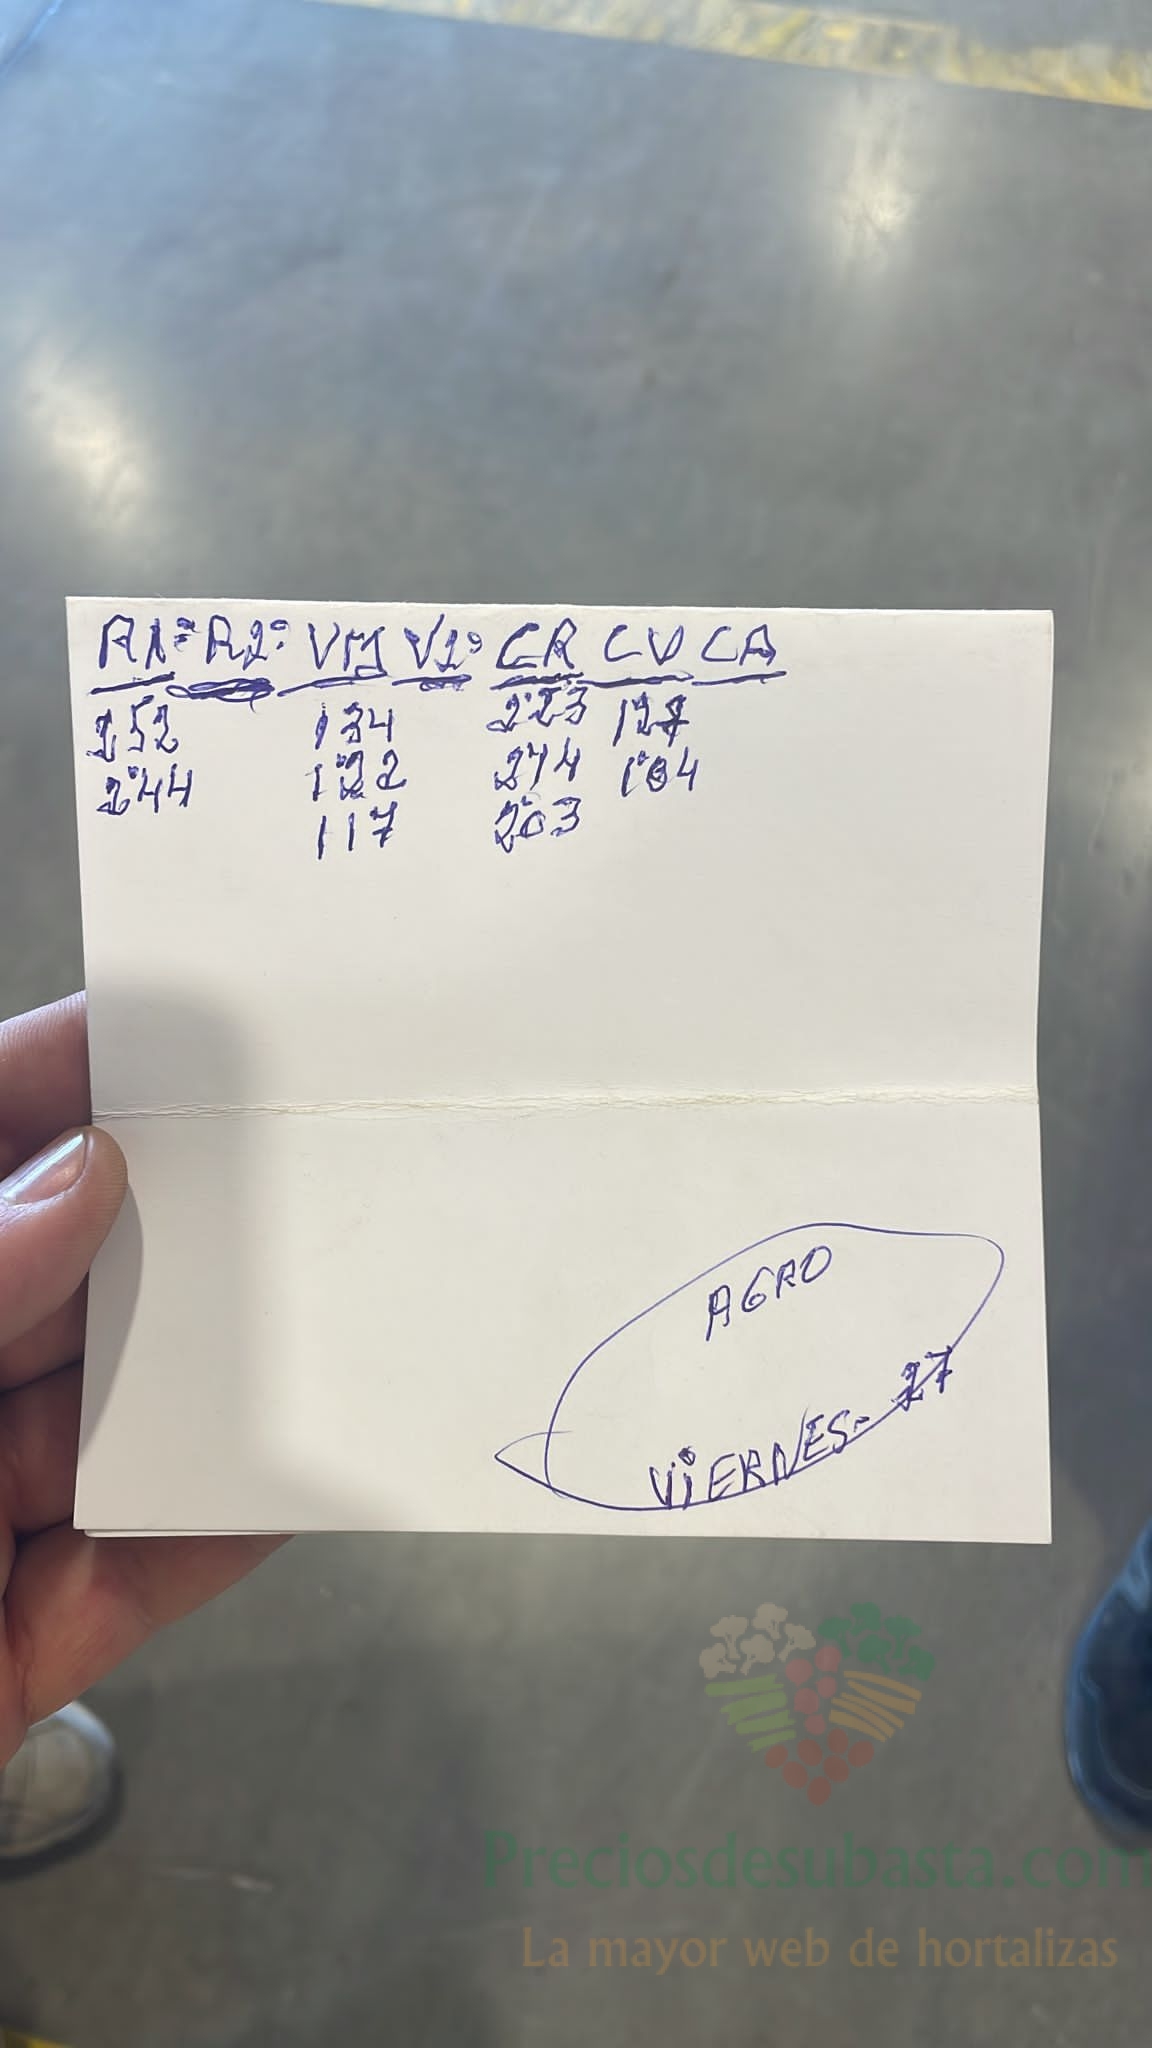 R1ª R2ª VM V1ª CR CV CA
252 134 223 127
244 122 214 104
117 203
AGRO
VIERNES- 27
Preciosdesubasta.com
La mayor web de hortalizas